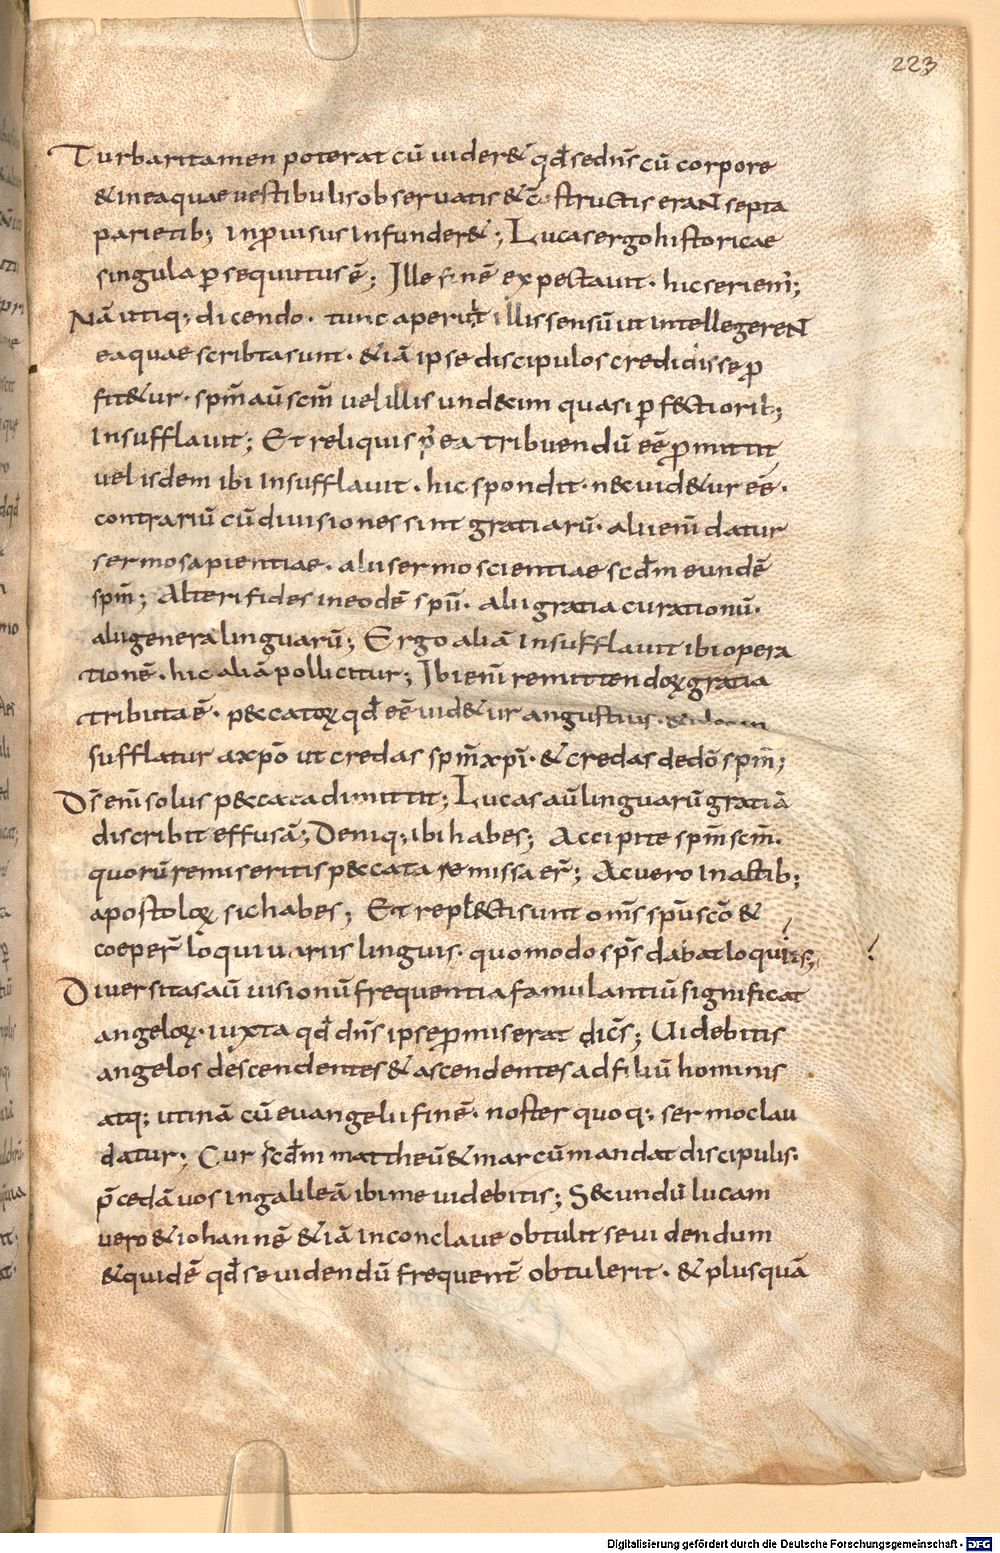 223
Turbari tamen poterat cū uider& qđ sed dn̄s cū corpore
& in ea quae uestibulis obseruatis & c̄structis eraNt septa
parietib; inprouisus infunder&; Lucas ergo historicae
singula ꝑsequutus ē; Ille finē expectauit · hic seriem̄;
Nā utiq; dicendo · tunc aperuit illis sensū ut intellegereNt
ea quae scribta sunt · & iā ipse discipulos credidisse ꝓ
fit&ur · sp̄m aū sc̄m uel illis undecim quasi ꝑfectiorib;
insufflauit; Et reliquis p̄ ea tribuendū eē ꝓmittit
uel isdem ibi insufflauit · hic spondit · nec uid&ur eē ·
contrariū cū diuisiones sint gratiarū · alii enī datur
sermo sapientiae · alii sermo scientiae scđm eundē
sp̄m; Alteri fides in eodē sp̄u · alii gratia curationū ·
alii genera linguarū; Ergo aliā insufflauit ibi opera
tionē · hic aliā pollicitur; Ibi enī remittendoꝝ gratia
tributa ē · peccatoꝝ qđ eē uid&ur angustius ·
sufflatur a xp̄o ut credas sp̄m xp̄i · & credas de dō sp̄m;
Dс̄ enī solus peccata dimittit; Lucas aū linguarū gratiā
discribit effusā; Deniq; ibi habes; Accipite sp̄m sc̄m ·
quorū remiseritis peccata remissa er̄; Ac uero in actib;
apostoloꝝ sic habes; Et repleti sunt om̄s sp̄u sc̄o &
coeper̄ loqui uariis linguis · quomodo sp̄s dabat loqui is;
Diuersitas aū uisionū frequentia famulantiū significat
angeloꝝ · iuxta qđ dn̄s ipse ꝓmiserat dicēs; Uidebitis
angelos descendentes & ascendentes ad filiū hominis
atq; utinā cū euangelii finē · noster quoq; sermo clau
datur; Cur scđm mattheū & marcū mandat discipulis ·
p̄cedā uos in galileā ibi me uidebitis; Secundū lucam
uero & iohannē &iā in conclaue obtulit se uidendum
& quidē qđ se uidendū frequent̄ obtulerit · & plus quā
Digitalisierung gefördert durch die Deutsche Forschungsgemeinschaft - DFG